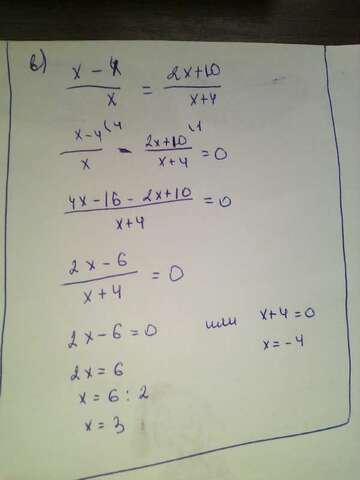 в)
x - 4 / x = 2x+10 / x+4
x-4 \4 / x - 2x+10 \1 / x+4 = 0
4x-16-2x+10 / x+4 = 0
2x-6 / x+4 = 0
2x-6=0 или x+4=0
2x=6 x=-4
x=6:2
x=3